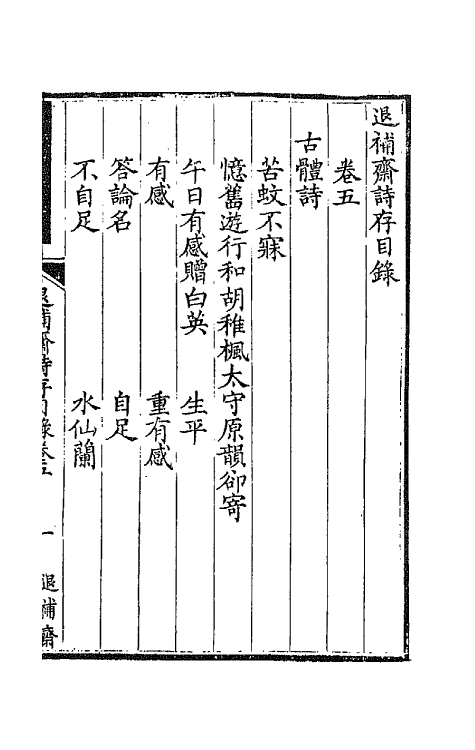 退補齋詩存目錄
卷五
古體詩
苦蚊不寐
憶舊遊行和胡稚楓太守原韻卻寄
午日有感贈白英 生平
有感 重有感
答論名 自足
不自足 水仙蘭
退補齋詩存目錄卷五 一 退補齋